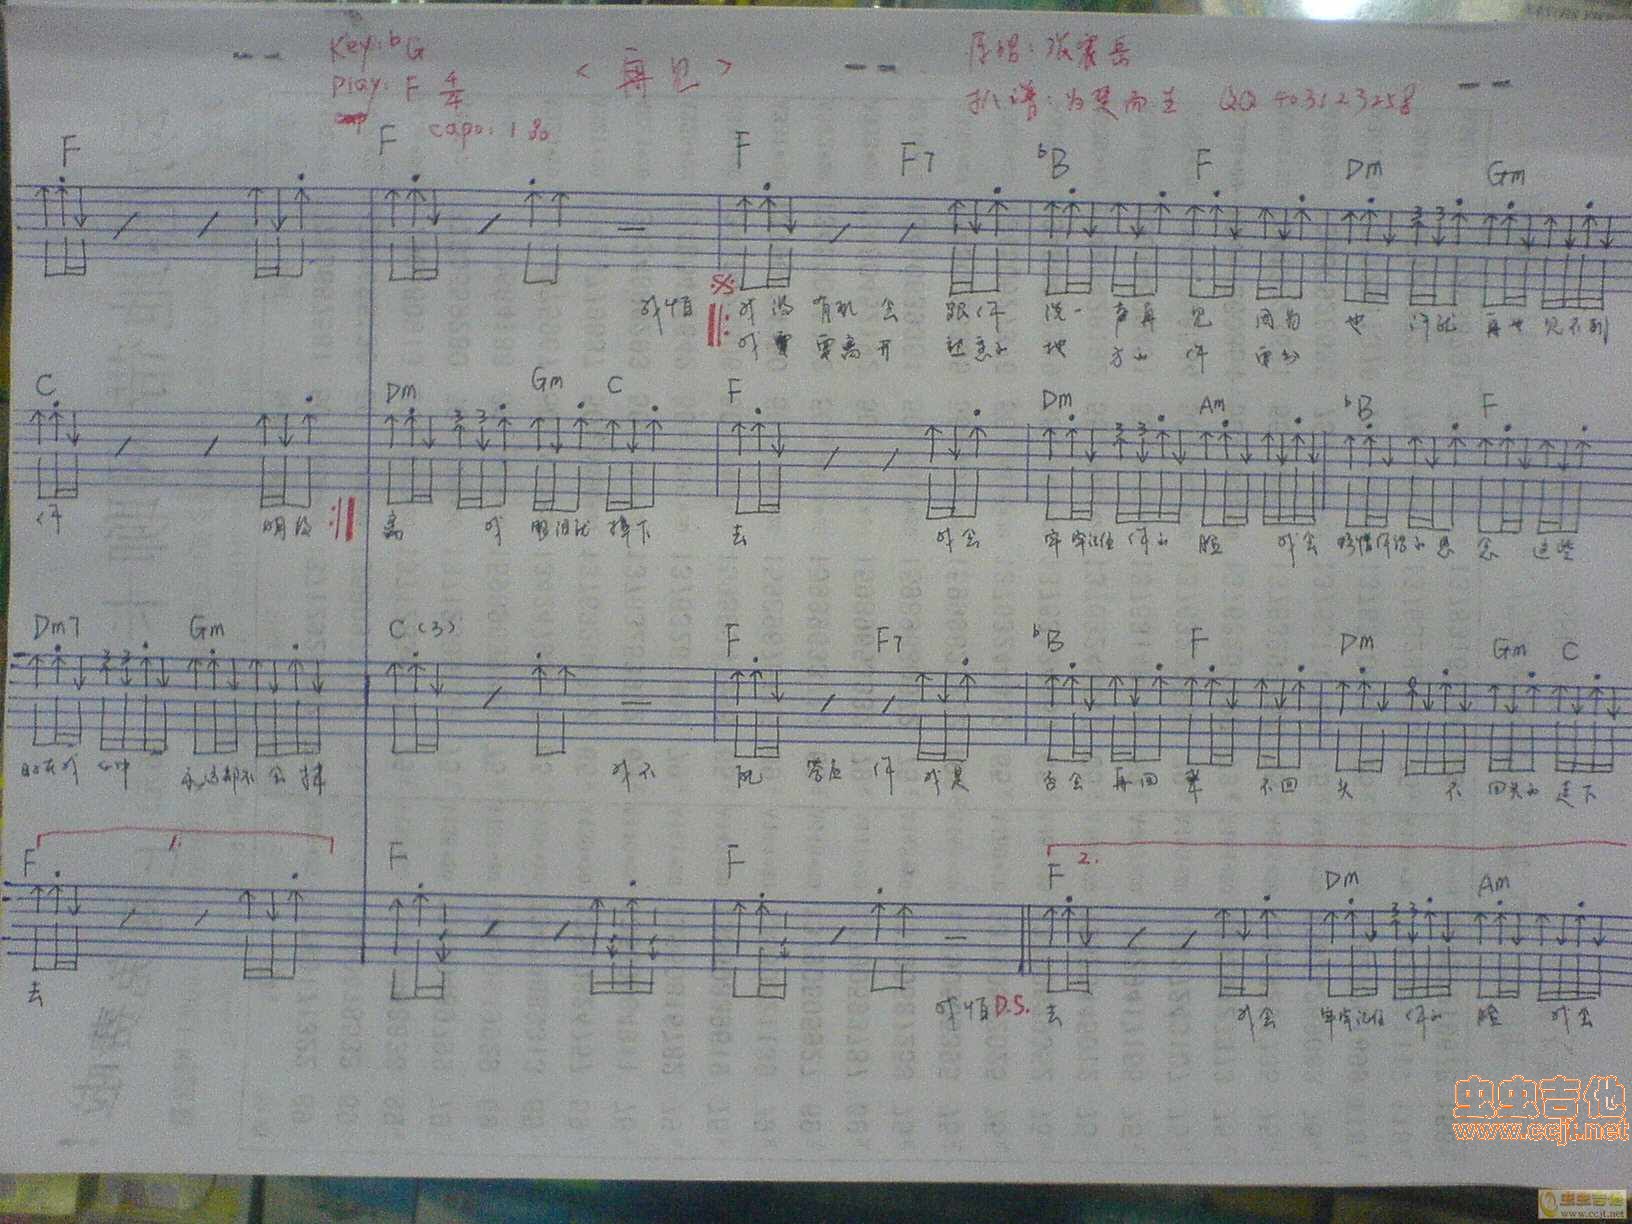 Key: ♭G
Play: F 4/4
capo: 1品
<再见>
原唱: 张震岳
扒谱: 为楚而生 QQ 403123258
F F F F7 ♭B F Dm Gm
我怕 我没 有机 会 跟你 说一 声再 见 因为 也 许就 再也 见不到
我要 要离 开 熟悉的 地 方和 你 要分
C Dm Gm C F Dm Am ♭B F
你 明天
离 我 眼泪就 掉下 去 我会 牢牢记住 你的 脸 我会 珍惜你给的思 念 这些
Dm7 Gm C (3) F F7 ♭B F Dm Gm C
日子在我 心中 永远都不 会 抹 我不 能 答应 你 我是 否会 再回 来 不回 头 不 回头的 走下
1.
F F F
2.
F Dm Am
去 我怕 D.S. 去 我会 牢牢记住 你的 脸 我会
虫虫吉他
www.ccjt.net
虫虫吉他
www.ccjt.net